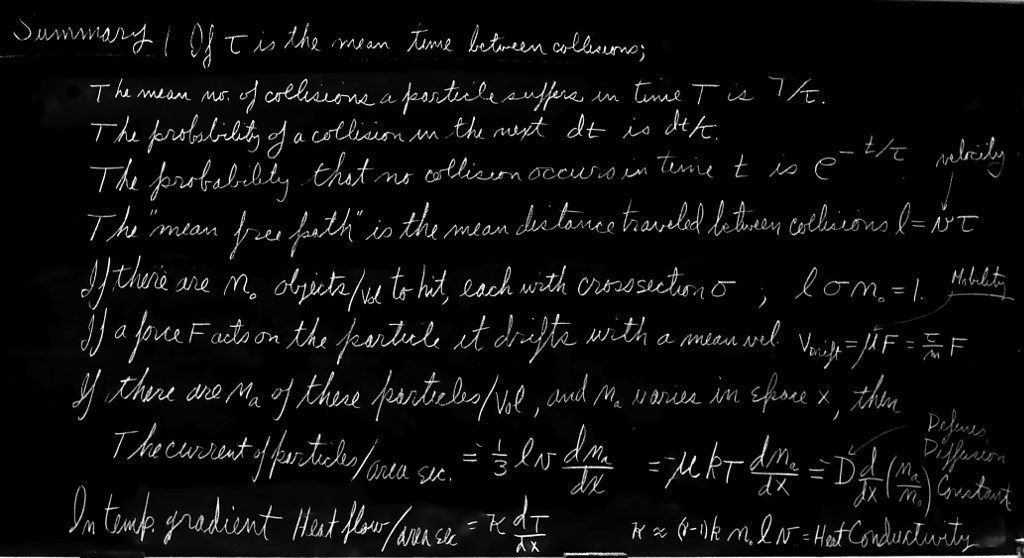 Summary | If τ is the mean time between collisions;
The mean no. of collisions a particle suffers in time T is T/τ.
The probability of a collision in the next dt is dt/τ.
The probability that no collision occurs in time t is e^{-t/τ}. velocity
The "mean free path" is the mean distance traveled between collisions l = vτ
If there are n₀ objects/vol to hit, each with cross section σ ; l σ n₀ = 1. Mobility
If a force F acts on the particle it drifts with a mean vel. V_drift = μF = τ/m F
If there are nₐ of these particles/vol, and nₐ varies in space x, then
The current of particles/area sec. = -1/3 l v dnₐ/dx = -μkT dnₐ/dx = -D d/dx (nₐ/n₀) Defines Diffusion Constant
In temp. gradient Heat flow/area sec = κ dT/dx κ ≈ (γ-1)k n₀ l v = Heat Conductivity